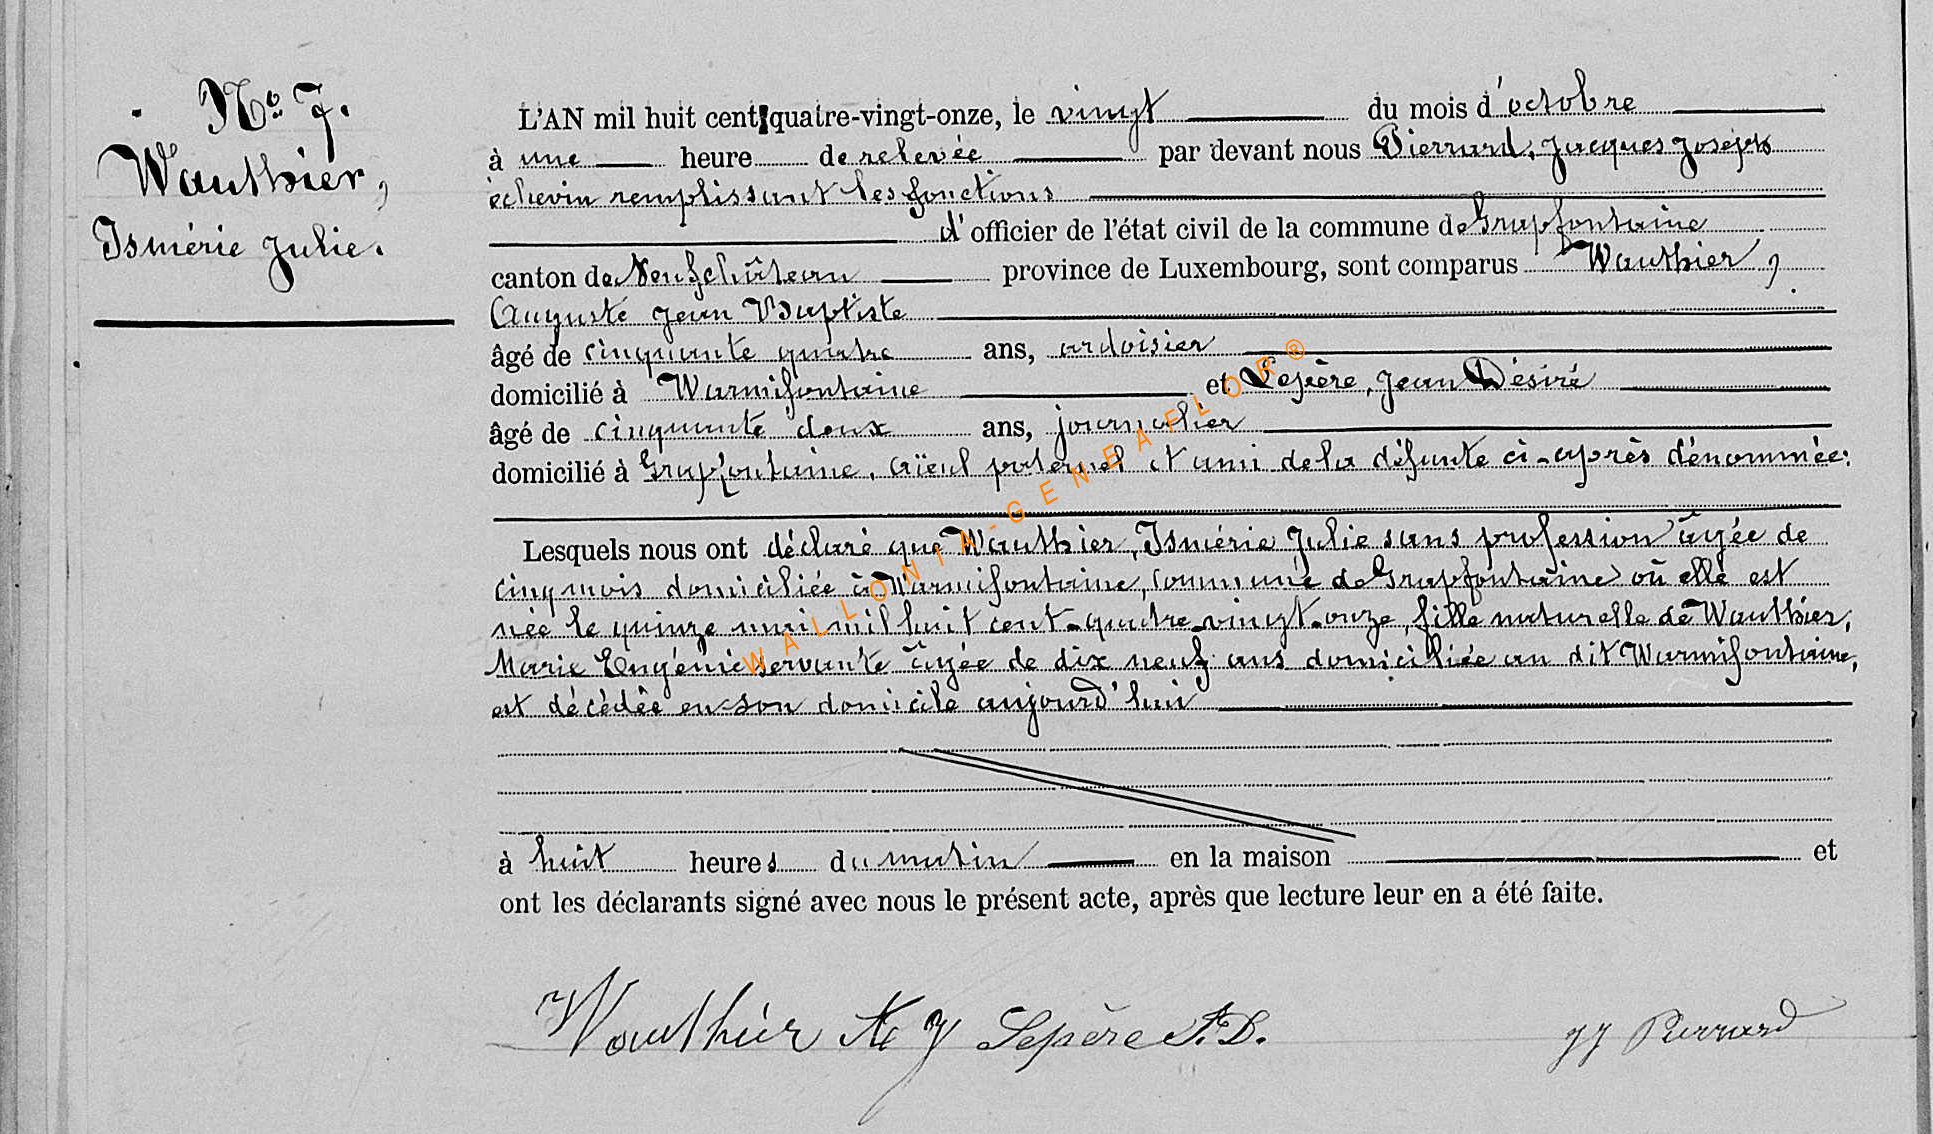 Nº 7.
Wauthier,
Ismérie Julie.
L'AN mil huit cent quatre-vingt-onze, le vingt du mois d'octobre
à une heure de relevée par devant nous Pierrard, Jacques Joseph
echevin remplissant les fonctions
d'officier de l'état civil de la commune de Grapfontaine
canton de Neufchâteau province de Luxembourg, sont comparus Wauthier,
Auguste Jean Baptiste
âgé de cinquante quatre ans, ardoisier
domicilié à Warmifontaine et Lepère, Jean Désiré
âgé de cinquante deux ans, journalier
domicilié à Grapfontaine, aïeul paternel et ami de la défunte ci-après dénommée:
Lesquels nous ont déclaré que Wauthier, Ismérie Julie sans profession âgée de
cinq mois domiciliée à Warmifontaine, commune de Grapfontaine où elle est
née le quinze mai mil huit cent-quatre-vingt-onze, fille naturelle de Wauthier,
Marie Eugénie servante âgée de dix neuf ans domiciliée au dit Warmifontaine,
est décédée en son domicile aujourd'hui
à huit heures du matin en la maison et
ont les déclarants signé avec nous le présent acte, après que lecture leur en a été faite.
Wauthier Lepère J.D. JJ Pierrard
WALLONIA-GENEAFLOR®